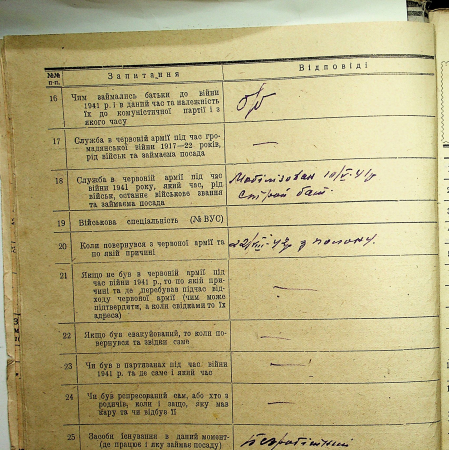 №№ п-п. Запитання Відповіді
16 Чим займались батьки до війни
1941 р. і в даний час та належність
їх до комуністичної партії і з
якого часу
б/п
17 Служба в червоній армії під час гро-
мадянської війни 1917—22 років,
рід військ та займаєма посада
—
18 Служба в червоній армії під час
війни 1941 року, який час, рід
військ, останнє військове звання
та займаєма посада
Мобілізован 10/V. 41 р
Строй бат.
19 Військова спеціальність (№ ВУС)
20 Коли повернувся з червоної армії та
по якій причині
з полону.
21 Якщо не був в червоній армії під
час війни 1941 р., то по якій при-
чині та де перебував підчас від-
ходу червоної армії (чим може
підтвердити, а коли свідками то їх
адреса)
—
22 Якщо був евакуйований, то коли по-
вернувся та звідки саме
—
23 Чи був в партизанах під час війни
1941 р. та де саме і який час
—
24 Чи був репресований сам, або хто з
родичів, коли і защо, яку мав
кару та чи відбув її
—
25 Засоби існування в даний момент
(де працює і яку займає посаду)
Безробітний